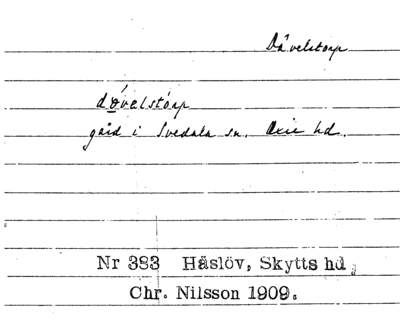 Dåvelstorp
dåvelstórp
gård i Svedala sn. Oxie hd.
Nr 383 Häslöv, Skytts hd.
Chr. Nilsson 1909.